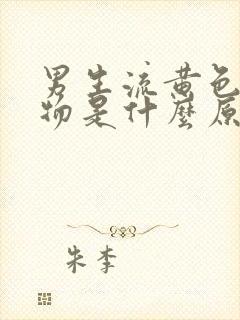 男生流黄色
物是什麼原
朱李